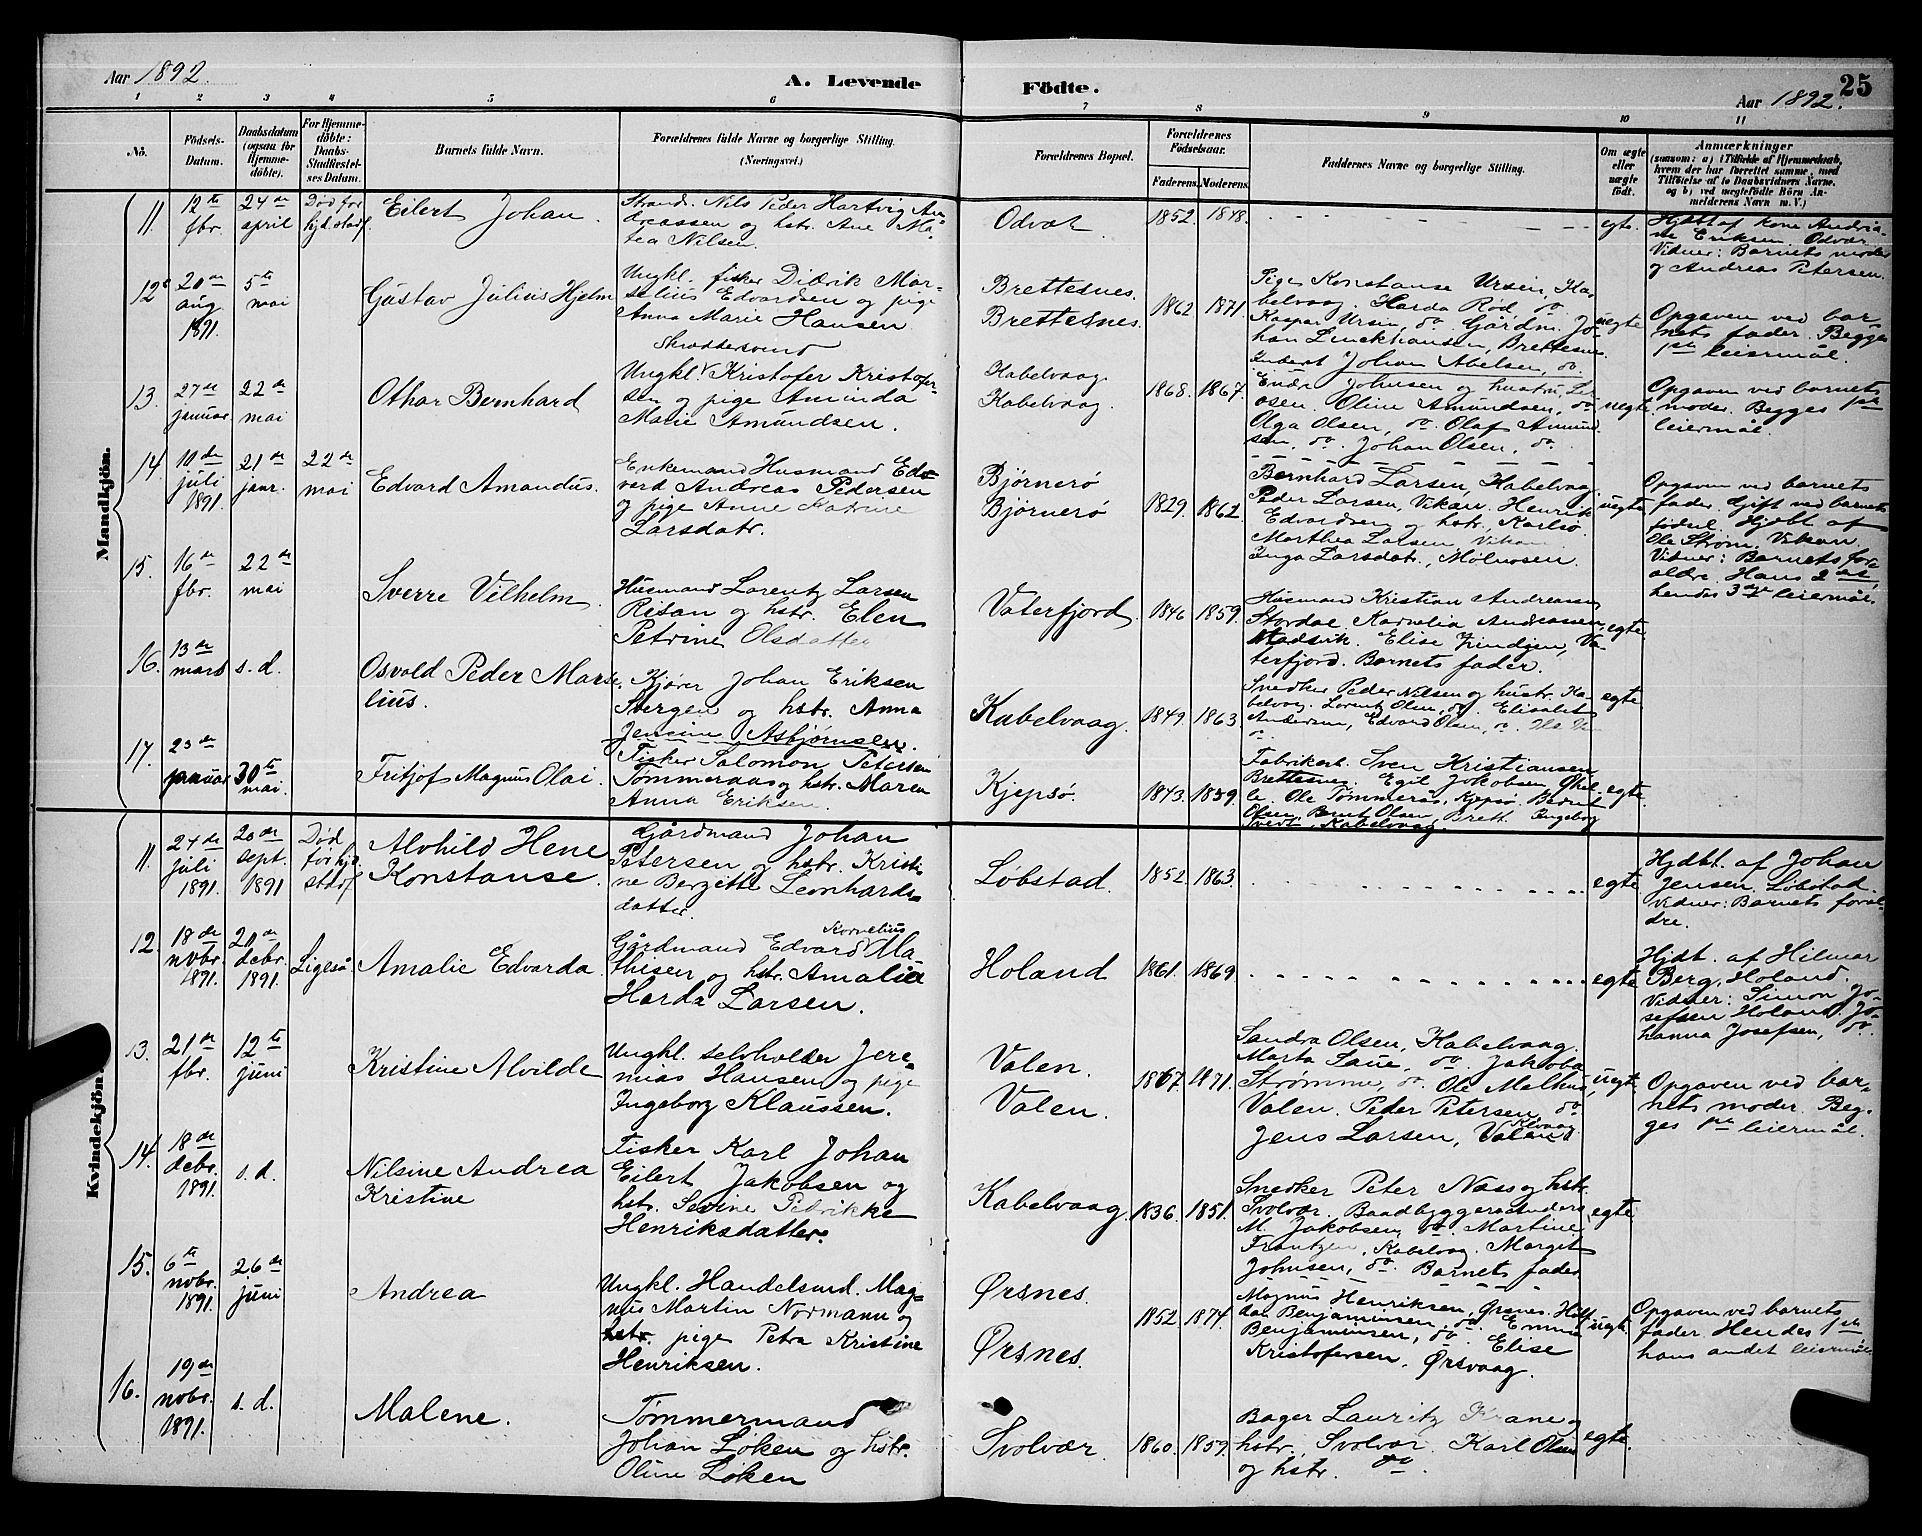 Aar 1892.
A. Levende
Födte.
25
Aar 1892.
1 2 3 4 5 6 7 8 9 10 11
No.
Födsels-
Datum.
Daabsdatum
(ogsaa for
Hjemme-
döbte).
For Hjemme-
döbte:
Daabs-
Stadfæstel-
ses Datum.
Barnets fulde Navn.
Forældrenes fulde Navne og borgerlige Stilling.
(Næringsvei.)
Forældrenes Bopæl.
Forældrenes
Födselsaar.
Faderens. Moderens.
Faddernes Navne og borgerlige Stilling.
Om ægte
eller
uægte
født.
Anmærkninger
(saasom: a) i Tilfælde af Hjemmedaab,
hvem der har forrettet samme, med
Tilföielse af to Daabsvidners Navne,
og b) ved uægtefödte Börn An-
melderens Navn m. V.)
Mandkjön.
11. 12te
fbr.
24de
april
Död før
hjd. stadf.
Eilert Johan.
Strand. Nils Peder Hartvig An-
dreassen og hstr. Ane Ma-
tea Nilsen.
Odvær
1852. 1848.
egte.
Hjdbt af kone Andria-
ne Eriksen. Odvær
Vidner: Barnets moder
og Andreas Petersen.
12. 20de
aug
1891.
5te
mai
Gustav Julius Hjelm
Ungkl. fisker Didrik Mar-
selius Edvardsen og pige
Anna Marie Hansen
Brettesnes.
Brettesnes.
1862 1871.
Pige Konstanse Ursin, Ka-
belvaag. Harda Rød do.
Kaspar Ursin, do. Gårdm. Jo-
han Linckhausen, Brettesnes.
Johan Abelsen, do.
uegte
Opgaven ved bar-
nets fader. Begges
1ste leiermål.
13. 27de
januar
22de
mai
Othar Bernhard
Skræddersvend
Ungkl. Kristofer Kristofer-
sen og pige Aminda
Marie Amundsen.
Kabelvaag
Kabelvaag.
1868. 1867.
Endr. Johnsen og hustru,
Olsen. Oline Amundsen, do
Olga Olsen, do. Olaf Amund-
sen, do. Johan Olsen, do.
uegte
Opgaven ved barnets
moder. Begges 1ste
leiermål.
14. 10de
juli
1891.
21de
janr.
22de
mai
Edvard Amandus.
Enkemand Husmand Ed-
vard Andreas Pedersen
og pige Anne Katrine
Larsdatr.
Bjørnerø
Bjørnerø
1829. 1862.
Bernhard Larsen, Kabelvaag
Peder Larsen, Vikan. Henrik
Edvardsen og hstr, Karlsø.
Marthea Larsen Vikan
Inga Larsdatr., Mølnosen.
uegte
Opgaven ved barnets
fader. Gift ved barnets
fødsel. Hjdbt. af
Ole Strøm, Vikan.
Vidner: Barnets for-
ældre. Hans 2det,
hendes 3die leiermål.
15. 16de
fbr.
22de
mai
Sverre Vilhelm
Husmand Lorentz Larsen
Risan og hstr. Elen
Petrine Olsdatter
Vaterfjord.
1846 1859.
Husmand Kristian Andreassen
Stordal Kornelia Andreassen
Madsvik. Elise Zindzen, Va-
terfjord. Barnets fader.
egte
16. 13de
marts
s. d.
Osvald Peder Marse-
lius.
Kjører Johan Eriksen
Svergen og hstr. Anna
Jensine Asbjørnsen.
Kabelvaag.
1849. 1863.
Snedker Peder Nilsen og hustr. Ka-
belvaag. Lorents Olsen, do Elisabet
Andersen, Edvard Olsen, do.
egte
17. 23de
januar
30te
mai.
Fritjof Magnus Olai.
Fisker Salomon Petersen
Tømmeraas og hstr. Maren
Anna Eriksen.
Kjepsø.
1843. 1859.
Fabrikbest. Sven Kristiansen
Brettesnes. Egil Jakobsen
Ole Tømmerås, Kjepsø. Berent
Olsen, Bernt Olsen, Brett. Ingeborg
Kabelvaag.
egte.
Kvindekjön.
11. 24de
juli
1891.
20de
sept.
1891
Død
før hjd.
stadf.
Alvhild Hene
Konstanse.
Gårdmand Johan
Petersen og hstr. Kristi-
ne Bergitte Leonhards-
datter.
Løbstad.
1852. 1863.
egte.
Hjdbt. af Johan
Jensen. Løbstad.
Vidner: Barnets foræl-
dre.
12. 18de
nvbr.
1891.
20de
debr.
1891.
Ligeså
Amalie Edvarda
Kornelius
Gårdmand Edvard Ma-
thisen og hstr. Amalia
Harda Larsen.
Holand
1861. 1869.
egte
Hjdt. af Hilmar
Berg, Holand.
Vidner: Simon Jo-
sefsen Holand. Jo-
hanna Josefsen, do.
13. 21de
fbr.
12te
juni
Kristine Alvilde
Ungkl. selvholder Jere-
mias Hansen og pige
Ingeborg Klaussen.
Valen.
Valen.
1867. 1871.
Sandra Olsen, Kabelvaag.
Marta Saue, do. Jakoba
Strømme, do. Ole Malhus,
Valen. Peder Petersen, do
Jens Larsen, Valen.
uegt.
Opgaven ved bar-
nets moder. Beg-
ges 1ste leiermål.
14. 18de
debr.
1891.
s. d.
Nilsine Andrea
Kristine
Fisker Karl Johan
Eilert Jakobsen og
hstr. Sevine Petrikke
Henriksdatter.
Kabelvaag.
1836. 1851.
Snedker Peter Næss og hstr.
Svolvær. Baadbygger Anders
M. Jakobsen do. Martine
Frantzen, Kabelvag. Margit
Johnsen, do. Barnets fader.
egte
15. 6te
nvbr.
1891.
26de
juni
Andrea
Ungkl. Handelsmd. Mag-
nus Martin Normann og
hstr. pige Petra Kristine
Henriksen.
Ørsnes.
Ørsnes.
1852. 1874.
Magnus Henriksen, Ørsnes. Hal-
dor Benjaminsen, do. Emma
Benjaminsen, do. Elise
Kristofersen, Ørsvaag.
uegt.
Opgaven ved barnets
fader. Hendes 1ste
hans andet leiermål
16. 19de
nvbr.
1891.
s. d.
Malene.
Tømmermand
Johan Løken og hstr.
Oline Løken
Svolvær.
1860. 1859.
Bager Lauritz Krane og
hstr. Svolvær. Karl Olsen
og hstr. do
egte.